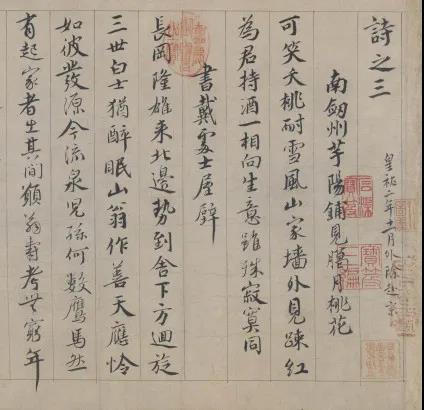 詩之三
皇祐二年十一月外除赴京
南劒州芋陽鋪見臘月桃花
可笑夭桃耐雪風山家墻外見疎紅
為君持酒一相向生意雖殊寂寞同
書戴處士屋壁
長岡隆雄來北邊勢到舍下方迴旋
三世白士猶醉眠山翁作善天應憐
如彼發源今流泉兒孫何數鷹馬然
有起家者出其間願翁壽考無窮年